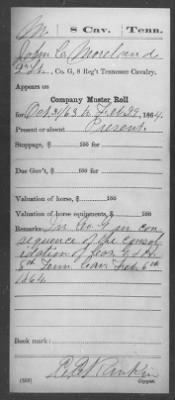 M. 8 Cav. Tenn.
John C. Moreland
2 Lt., Co. G, 8 Reg't Tennessee Cavalry.
Appears on
Company Muster Roll
for Oct 31/63 to Feb 29, 1864.
Present or absent Present
Stoppage, $ 100 for
Due Gov't, $ 100 for
Valuation of horse, $ 100
Valuation of horse equipments, $ 100
Remarks: In Co. G in con
sequence of the consol
idation of
5th Tenn Cav Feb 6th
1864
Book mark:
Rankin
Copyist.